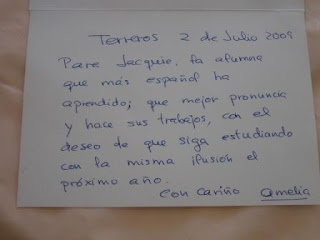 Terreros 2 de Julio 2009
Para Jacquie, la alumna
que más español ha
aprendido; que mejor pronuncia
y hace sus trabajos, con el
deseo de que siga estudiando
con la misma ilusión el
próximo año.
Con Cariño Amelia